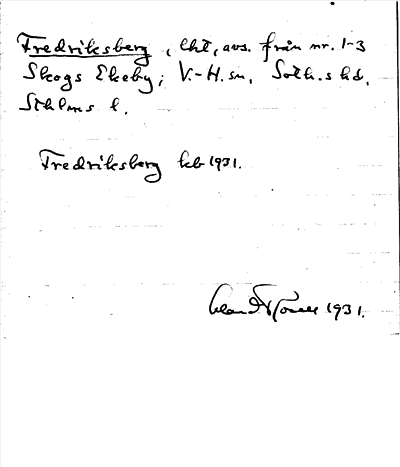 Fredriksberg, lht, avs. från nr. 1-3
Skogs Ekeby, V.-H. sn, Soth. s hd,
Sthlms l.
Fredriksberg kb 1931.
1931.